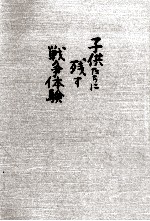 子供たちに
残す
戦争体験